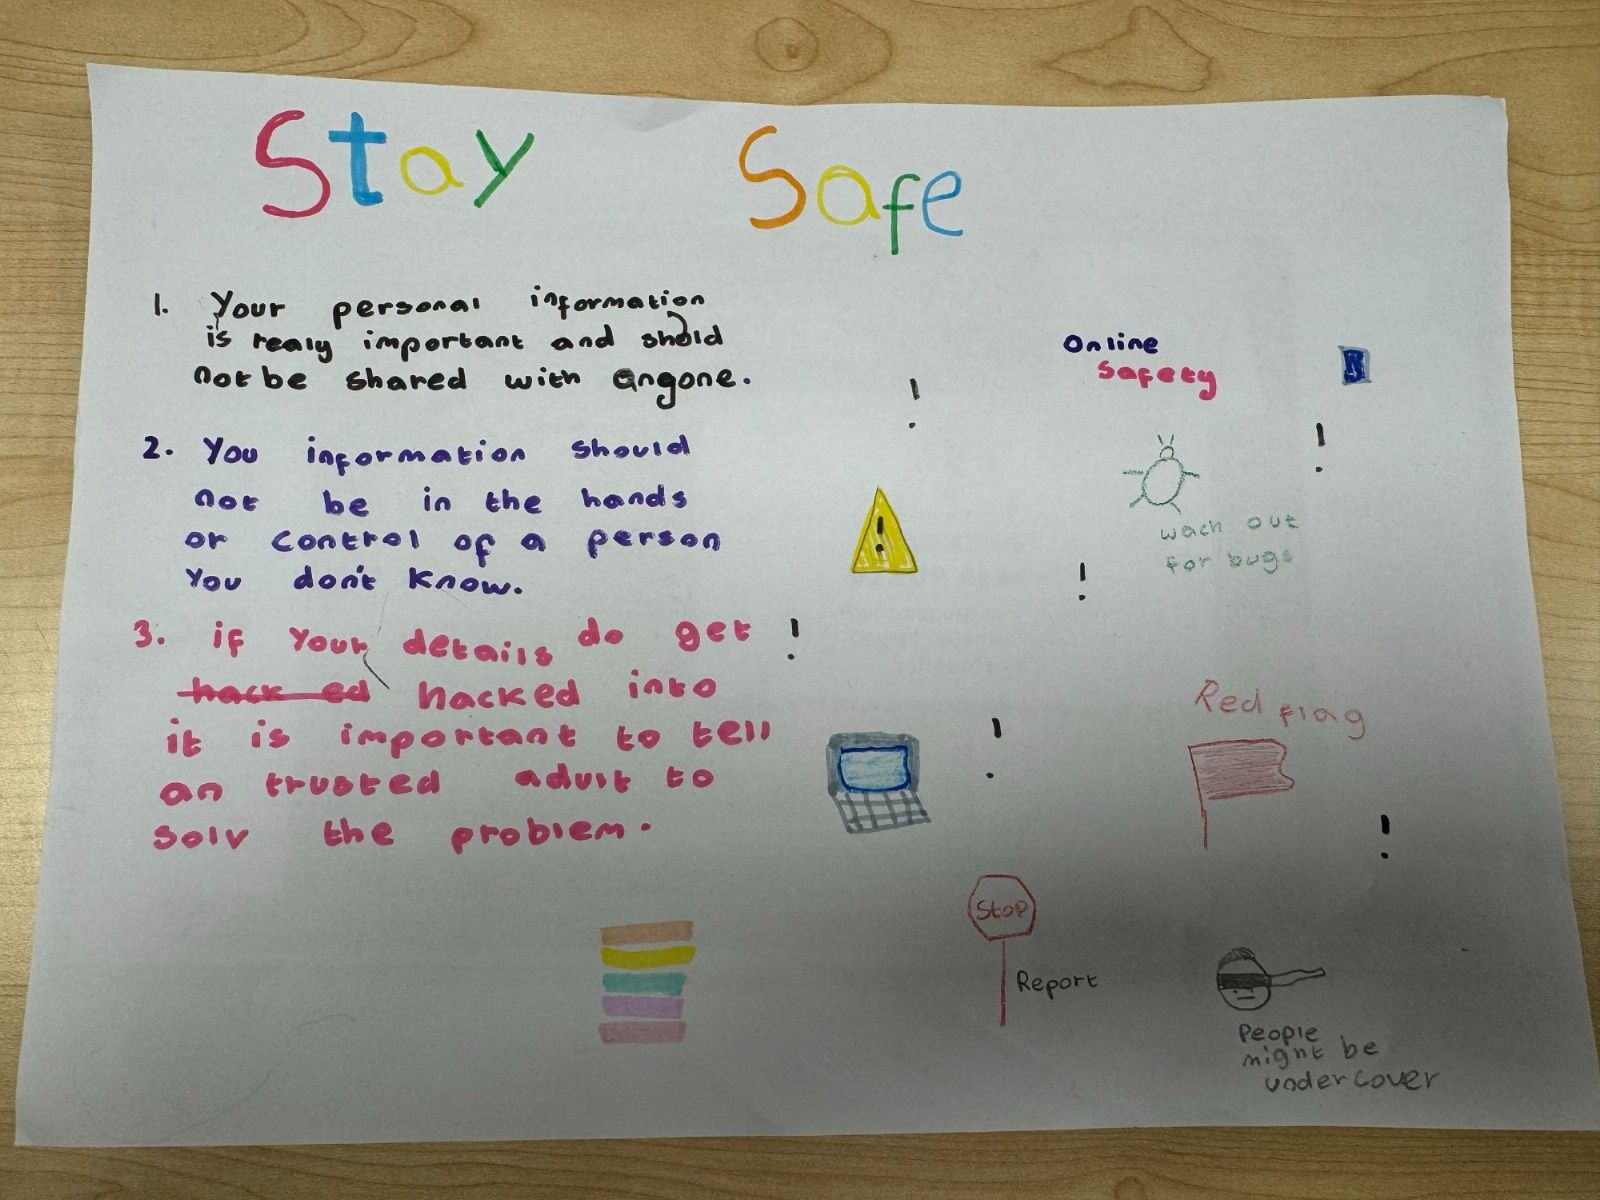 Stay Safe
1. Your personal information
is realy important and shold
not be shared with angone.
2. You information should
not be in the hands
or control of a person
you don't know.
3. if your details do get
hack ed hacked into
it is important to tell
an trusted adult to
solv the problem.
!
Online
Safety
!
wach out
for bugs
!
!
!
!
Red flag
!
Stop
Report
People
might be
undercover